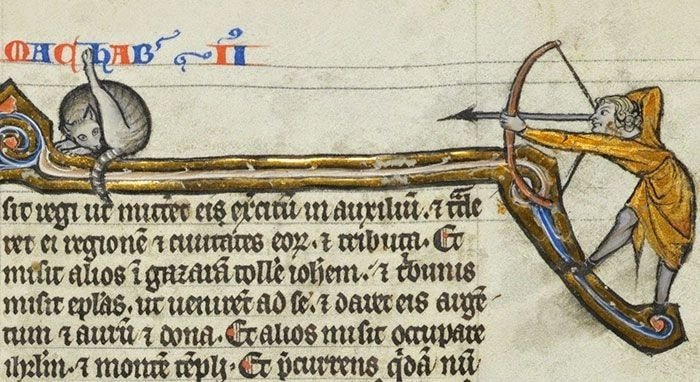 MACHAB' II
sit regi ut mittet eis exercitū in auxiliū. ⁊ t̄de
ret ei regionē ⁊ ciuitates eoꝝ. ⁊ tributa. Et
misit alios ī gazarā tolle iohem. ⁊ tͥbunis
misit eplas. ut uenirēt ad se. ⁊ daret eis argē
tum ⁊ aurū ⁊ dona. Et alios misit occupare
ihrlm̄. ⁊ montē tēpli. Et p̄currens qͥdā nū